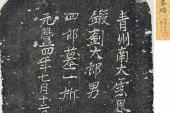 青州南大雲界
鍛剳大郎男
四郎墓一所
元豐四年七月十三